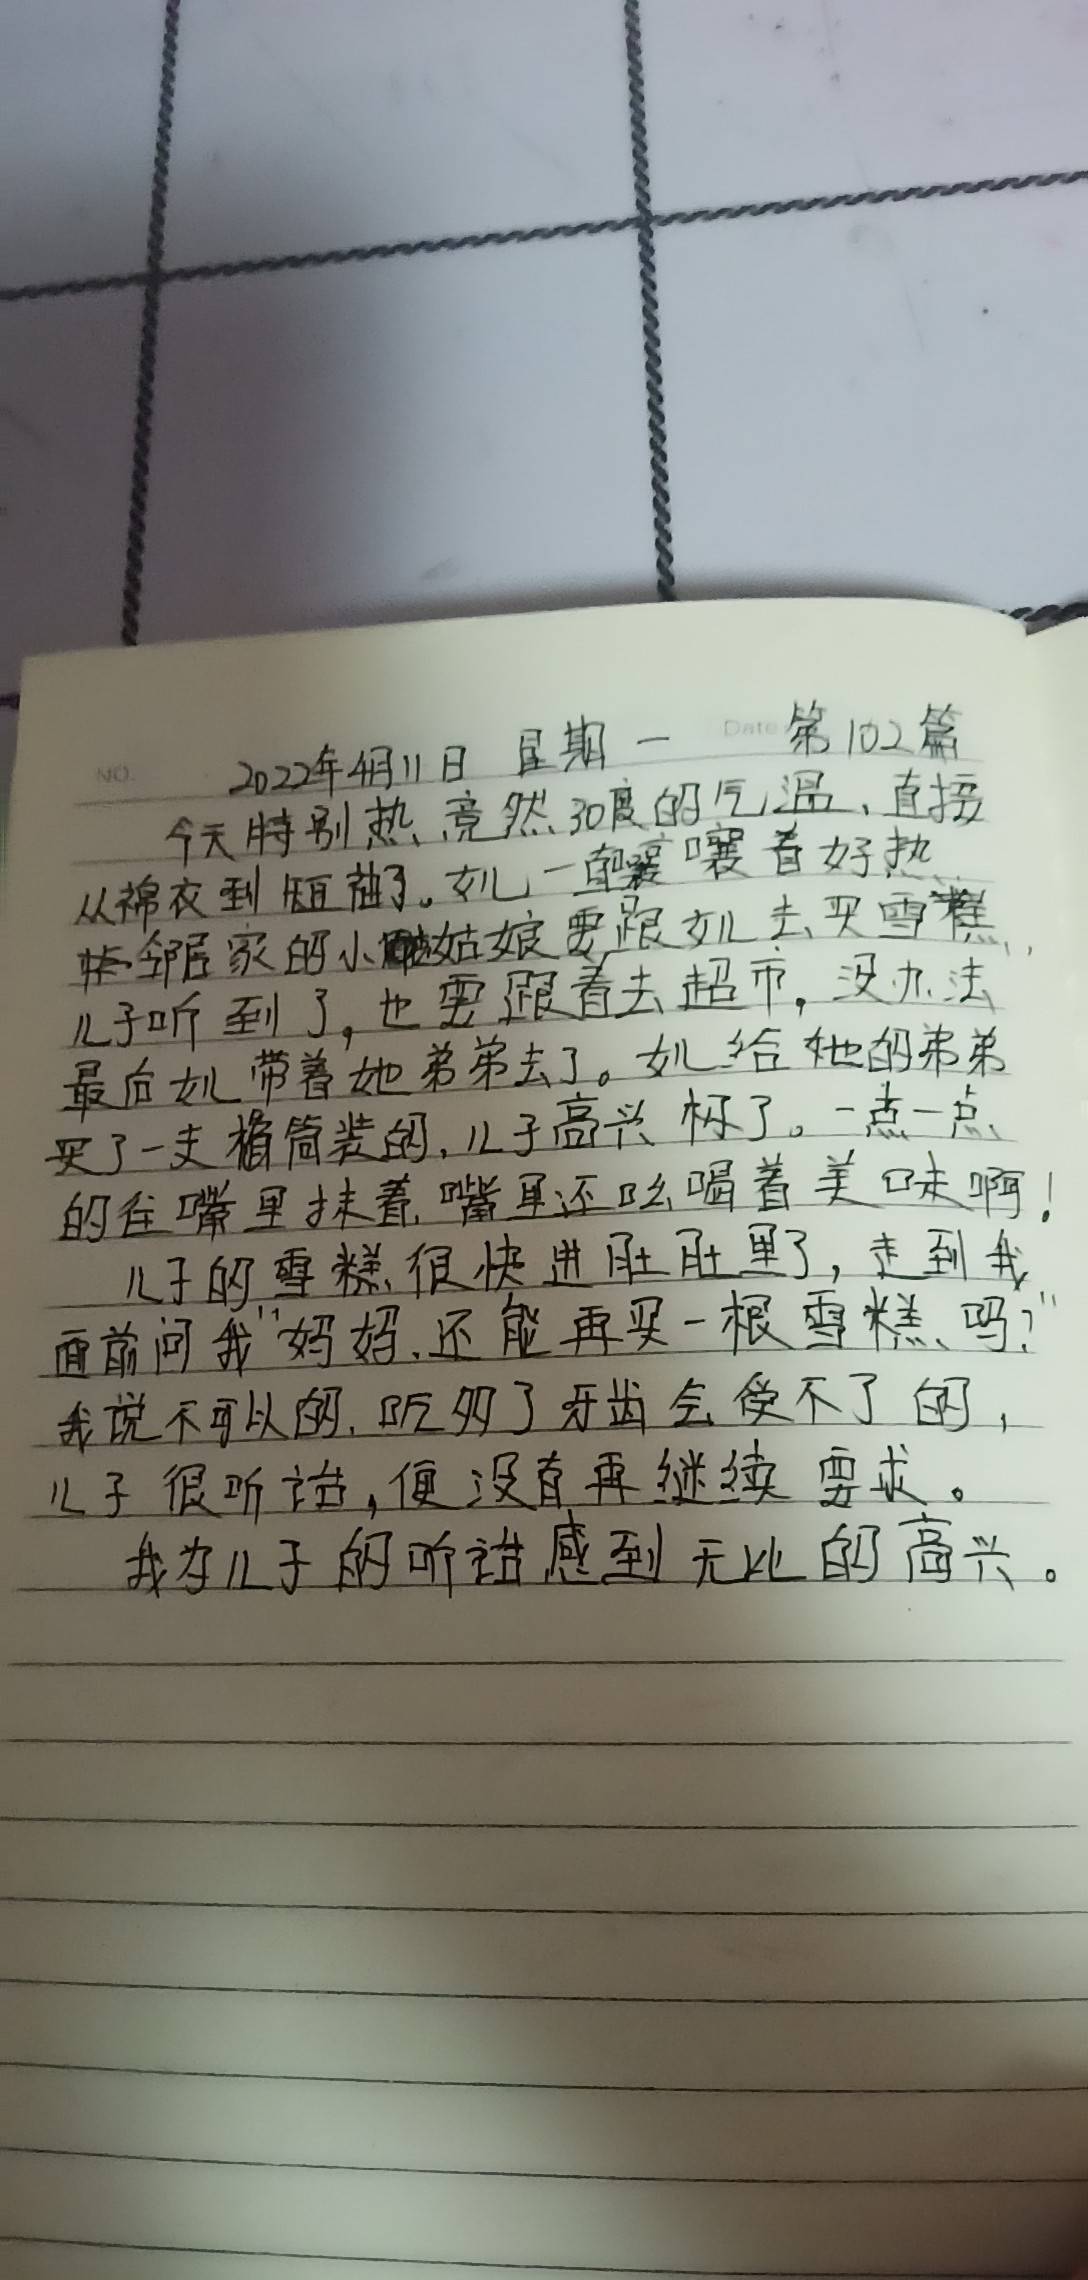 NO.
Date
2022年4月11日 星期一 第102篇
今天特别热、竟然30度的气温、直接
从棉衣到短袖了。女儿一直嚷嚷着好热、
邻居家的小姑娘要跟女儿去买雪糕、
儿子听到了,也要跟着去超市,没办法
最后女儿带着她弟弟去了。女儿给她的弟弟
买了一支桶筒装的,儿子高兴坏了。一点一点
的往嘴里抹着,嘴里还吆喝着美味啊!
儿子的雪糕很快进肚肚里了,走到我
面前问我"妈妈,还能再买一根雪糕吗?"
我说不可以的,吃多了牙齿会受不了的,
儿子很听话,便没有再继续要求。
我为儿子的听话感到无比的高兴。